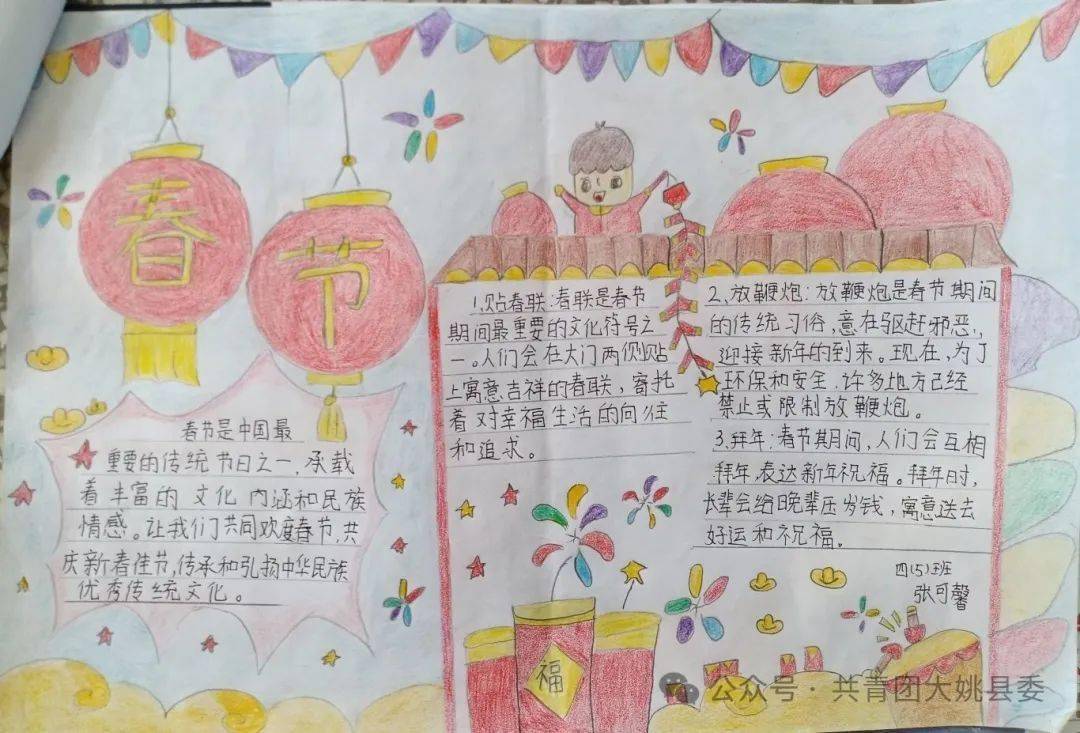 春
节
春节是中国最
重要的传统节日之一,承载
着丰富的文化内涵和民族
情感。让我们共同欢度春节,共
庆新春佳节,传承和弘扬中华民族
优秀传统文化。
1、贴春联:春联是春节
期间最重要的文化符号之
一。人们会在大门两侧贴
上寓意吉祥的春联,寄托
着对幸福生活的向往
和追求。
2、放鞭炮:放鞭炮是春节期间
的传统习俗,意在驱赶邪恶,
迎接新年的到来。现在,为了
环保和安全,许多地方已经
禁止或限制放鞭炮。
3、拜年:春节期间,人们会互相
拜年,表达新年祝福。拜年时,
长辈会给晚辈压岁钱,寓意送去
好运和祝福。
四(5)班
张可馨
福
公众号·共青团大姚县委